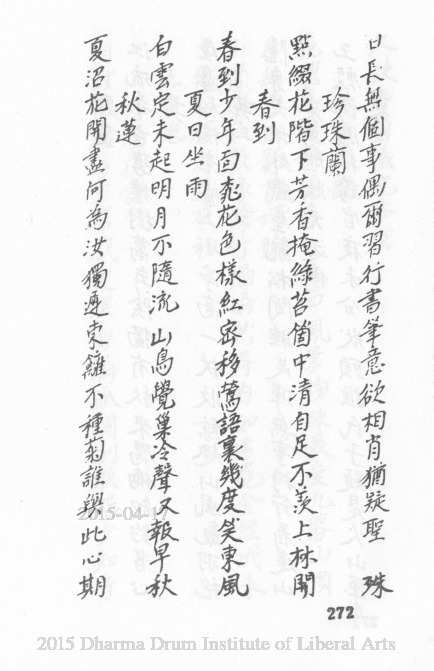 日長無個事偶爾習行書筆意欲相肖猶疑聖 殊
珍珠蘭
點綴花階下芳香掩綠苔箇中清自足不羨上林開
春到
春到少年面乖花色樣紅密移鶯語裏幾度笑東風
夏日坐雨
白雲定未起明月不隨流山鳥覺巢冷聲又報早秋
秋蓮
夏沼花開盡何為汝獨遲東籬不種菊誰與此心期
272
2015-04-17
2015 Dharma Drum Institute of Liberal Arts